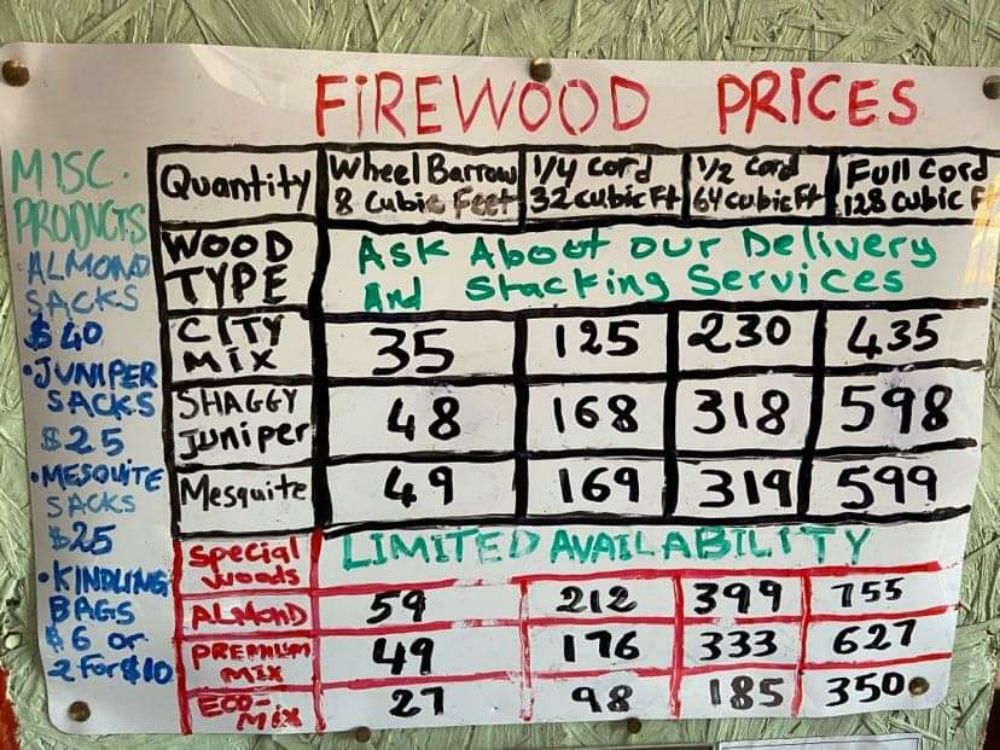 FIREWOOD PRICES
MISC.
PRODUCTS
·ALMOND
SACKS
$40
·JUNIPER
SACKS
$25
·MESQUITE
SACKS
$25
·KINDLING
BAGS
$6 or
2 For $10
Quantity
Wheel Barrow
8 Cubic Feet
1/4 cord
32 cubic Ft
1/2 cord
64 cubic Ft
Full Cord
128 cubic F
WOOD
TYPE
Ask About our Delivery
And Stacking Services
CITY
MIX
35 125 230 435
SHAGGY
Juniper
48 168 318 598
Mesquite 49 169 319 599
Special
Woods
LIMITED AVAILABILITY
ALMOND 59 212 399 755
PREMIUM
MIX
49 176 333 627
ECO-
MIX
27 98 185 350